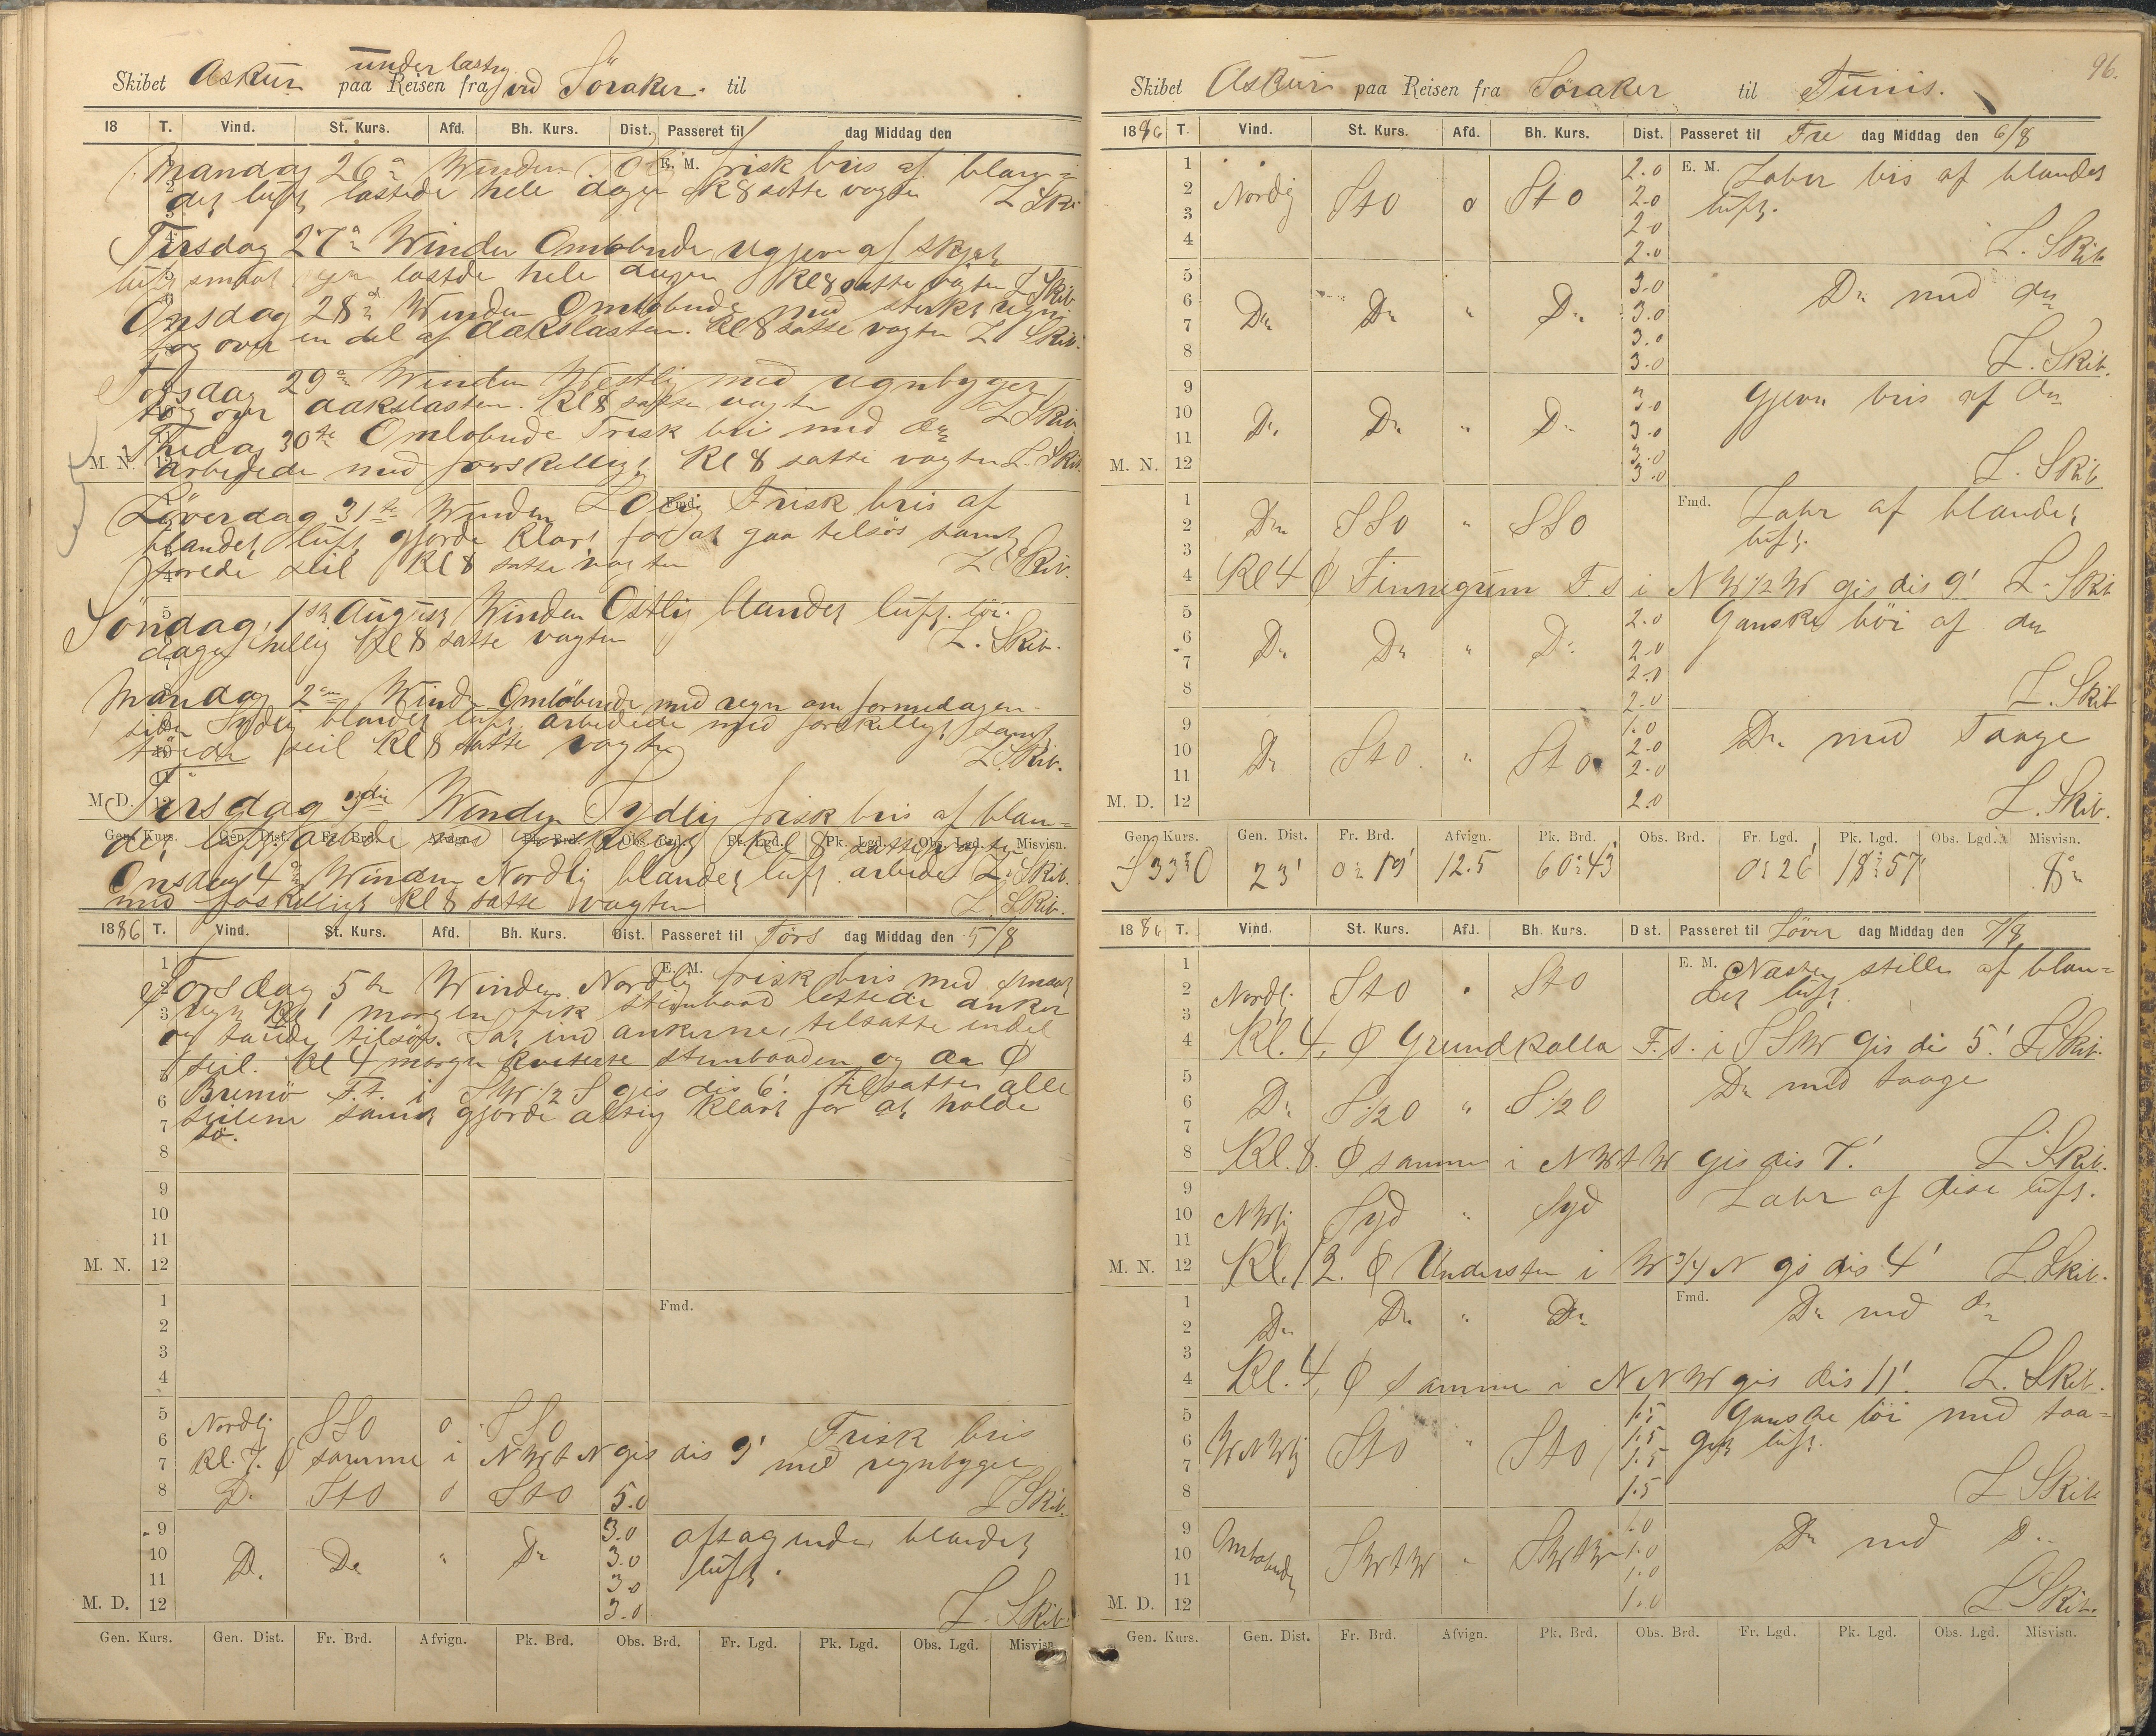 Skibet Askur under lastng paa Reisen fra vid Söraker. til
18 T. Vind. St. Kurs. Afd. Bh. Kurs. Dist. Passeret til dag Middag den
E. M.
Mandag 26de Winden frisk bris af blan=
det luft lastede hele dagen Kl 8 satte vagten L Ski
Tirsdag 27de Winden Omlobnde af
luft lastde hele dagen Kl 8 satte vagten L Skib
Onsdag 28de Winden Omlobnde med sterkt regn
tog over en del af dækslasten. Kl 8 satte vagten L Skib.
Torsdag 29de Winden Westlig med regnbyger
tog over dækslasten. Kl 8 satte vagten L Skib.
Fredag 30te Omlobnde Frisk bris med do
M. N. 12 arbeidede med forskelligt Kl 8 satte vagten L. Skib.
Fmd.
Löverdag 31te Winden Frisk bris af
blandet luft gjorde klart for at gaa telsös samt
seil Kl 8 satte vagten L Skib.
Söndag, 1ste August Winden Ostlig blandet luft.
dagen hellig Kl 8 satte vagten L. Skib.
Mandag 2den Wind Omlöbende med regn om formedagen.
siden Sydlig blandet luft arbeidede med forskelligt samt
seil Kl 8 satte vagten L. Skib.
M. D. 12 Tirsdag 3die Winden Sydlig frisk bris af blan=
Gen. Kurs. Gen. Dist. Fr. Brd. Afvign. Pk. Brd. Obs. Brd. Fr. Lgd. Pk. Lgd. Obs. Lgd. Misvisn.
det luft arbede med forskelligt Kl 8 satte vagten
Onsdag 4de Winden Nordlig blandet luft arbede L. Skib.
med foskelligt Kl 8 satte vagten L. Skib.
1886 T. Vind. St. Kurs. Afd. Bh. Kurs. Dist. Passeret til Tors dag Middag den 5/8
E. M.
Torsdag 5te Winden Nordlig frisk bris med smaat
regn Kl 1 morgen fik stimbaad lettede anker
og tilsös. Sat ind ankerne, telsatte endel
seil. Kl 4 morgn kviterte stimbaaden og da Ø
Bremö F. t. i SW 1/2 S gis dis 6'. Tilsatte alle
seilene samt gjorde alting klart for at holde
sö.
8
9
10
11
M. N. 12
1 Fmd.
2
3
4
5 Nordlj SSO 0 SSO Frisk bris
Kl. 7. Ø samme i NWtN gis dis 9' med regnbyger
8 Do StO 0 StO 5.0 L Skib.
9 3.0 aftagende blandet
10 Do Do " Do 3.0 luft.
11 3.0
M. D. 12 3.0 L. Skib.
Gen. Kurs. Gen. Dist. Fr. Brd. Afvign. Pk. Brd. Obs. Brd. Fr. Lgd. Pk. Lgd. Obs. Lgd. Misvisn.
96.
Skibet Askur paa Reisen fra Söraker til Tunis.
1886 T. Vind. St. Kurs. Afd. Bh. Kurs. Dist. Passeret til Fre dag Middag den 6/8
1 2.0 E. M. Laber bris af blandet
2 Nordlj StO 0 StO 2.0 luft.
3 2.0
4 2.0 L. Skib
5 3.0 Do med do
6 Do Do " Do 3.0
7 3.0
8 3.0 L. Skib.
9 3.0 gjevn bris af do
10 Do Do " Do 3.0
11 3.0
M. N. 12 3.0 L. Skib
1 Fmd. Labr af blandet
2 Do SSO " SSO luft.
3
4 Kl 4 Ø Finnegrun F. s i NW 1/2 W gis dis 9' L. Skib
5 2.0 Ganske löi af do
6 Do Do " Do 2.0
7 2.0
8 2.0 L. Skib
9 1.0 Do med Taage
10 Do StO " StO 2.0
11 2.0
M. D. 12 2.0 L. Skib.
Gen. Kurs. Gen. Dist. Fr. Brd. Afvign. Pk. Brd. Obs. Brd. Fr. Lgd. Pk. Lgd. Obs. Lgd. Misvisn.
S 33° O 23' 0° 19' 12.5 60° 43' 0° 26' 18° 57' 8°
1886 T. Vind. St. Kurs. Afd. Bh. Kurs. Dist. Passeret til Löver dag Middag den 7/8
1 E. M. Næsten stille af blan=
2 Nordlj. StO " StO det luft.
3
4 Kl. 4. Ø Grundkalla F. s. i SSW gis dis 5.' L Skib.
5 Do med taage
6 Do S 1/2 O " S 1/2 O
7
8 Kl. 8. Ø samme i NWtW gis dis 7.' L Skib.
9 Labr af disi luft.
10 NWlj Syd " Syd
11
M. N. 12 Kl. 12. Ø Understen i W 3/4 N gis dis 4' L. Skib.
1 Fmd. Do med do
2 Do Do " Do
3
4 Kl. 4, Ø samme i NNW gis dis 11'. L. Skib.
5 1.5 Ganske löi med taa=
6 WNWlj StO " StO 1.5 get luft.
7 1.5
8 1.5 L Skib
9 1.0 Do med Do
10 Omlobende SWtW " SWtW 1.0
11 1.0
M. D. 12 1.0 L Skib.
Gen. Kurs. Gen. Dist. Fr. Brd. Afvign. Pk. Brd. Obs. Brd. Fr. Lgd. Pk. Lgd. Obs. Lgd. Misvisn.